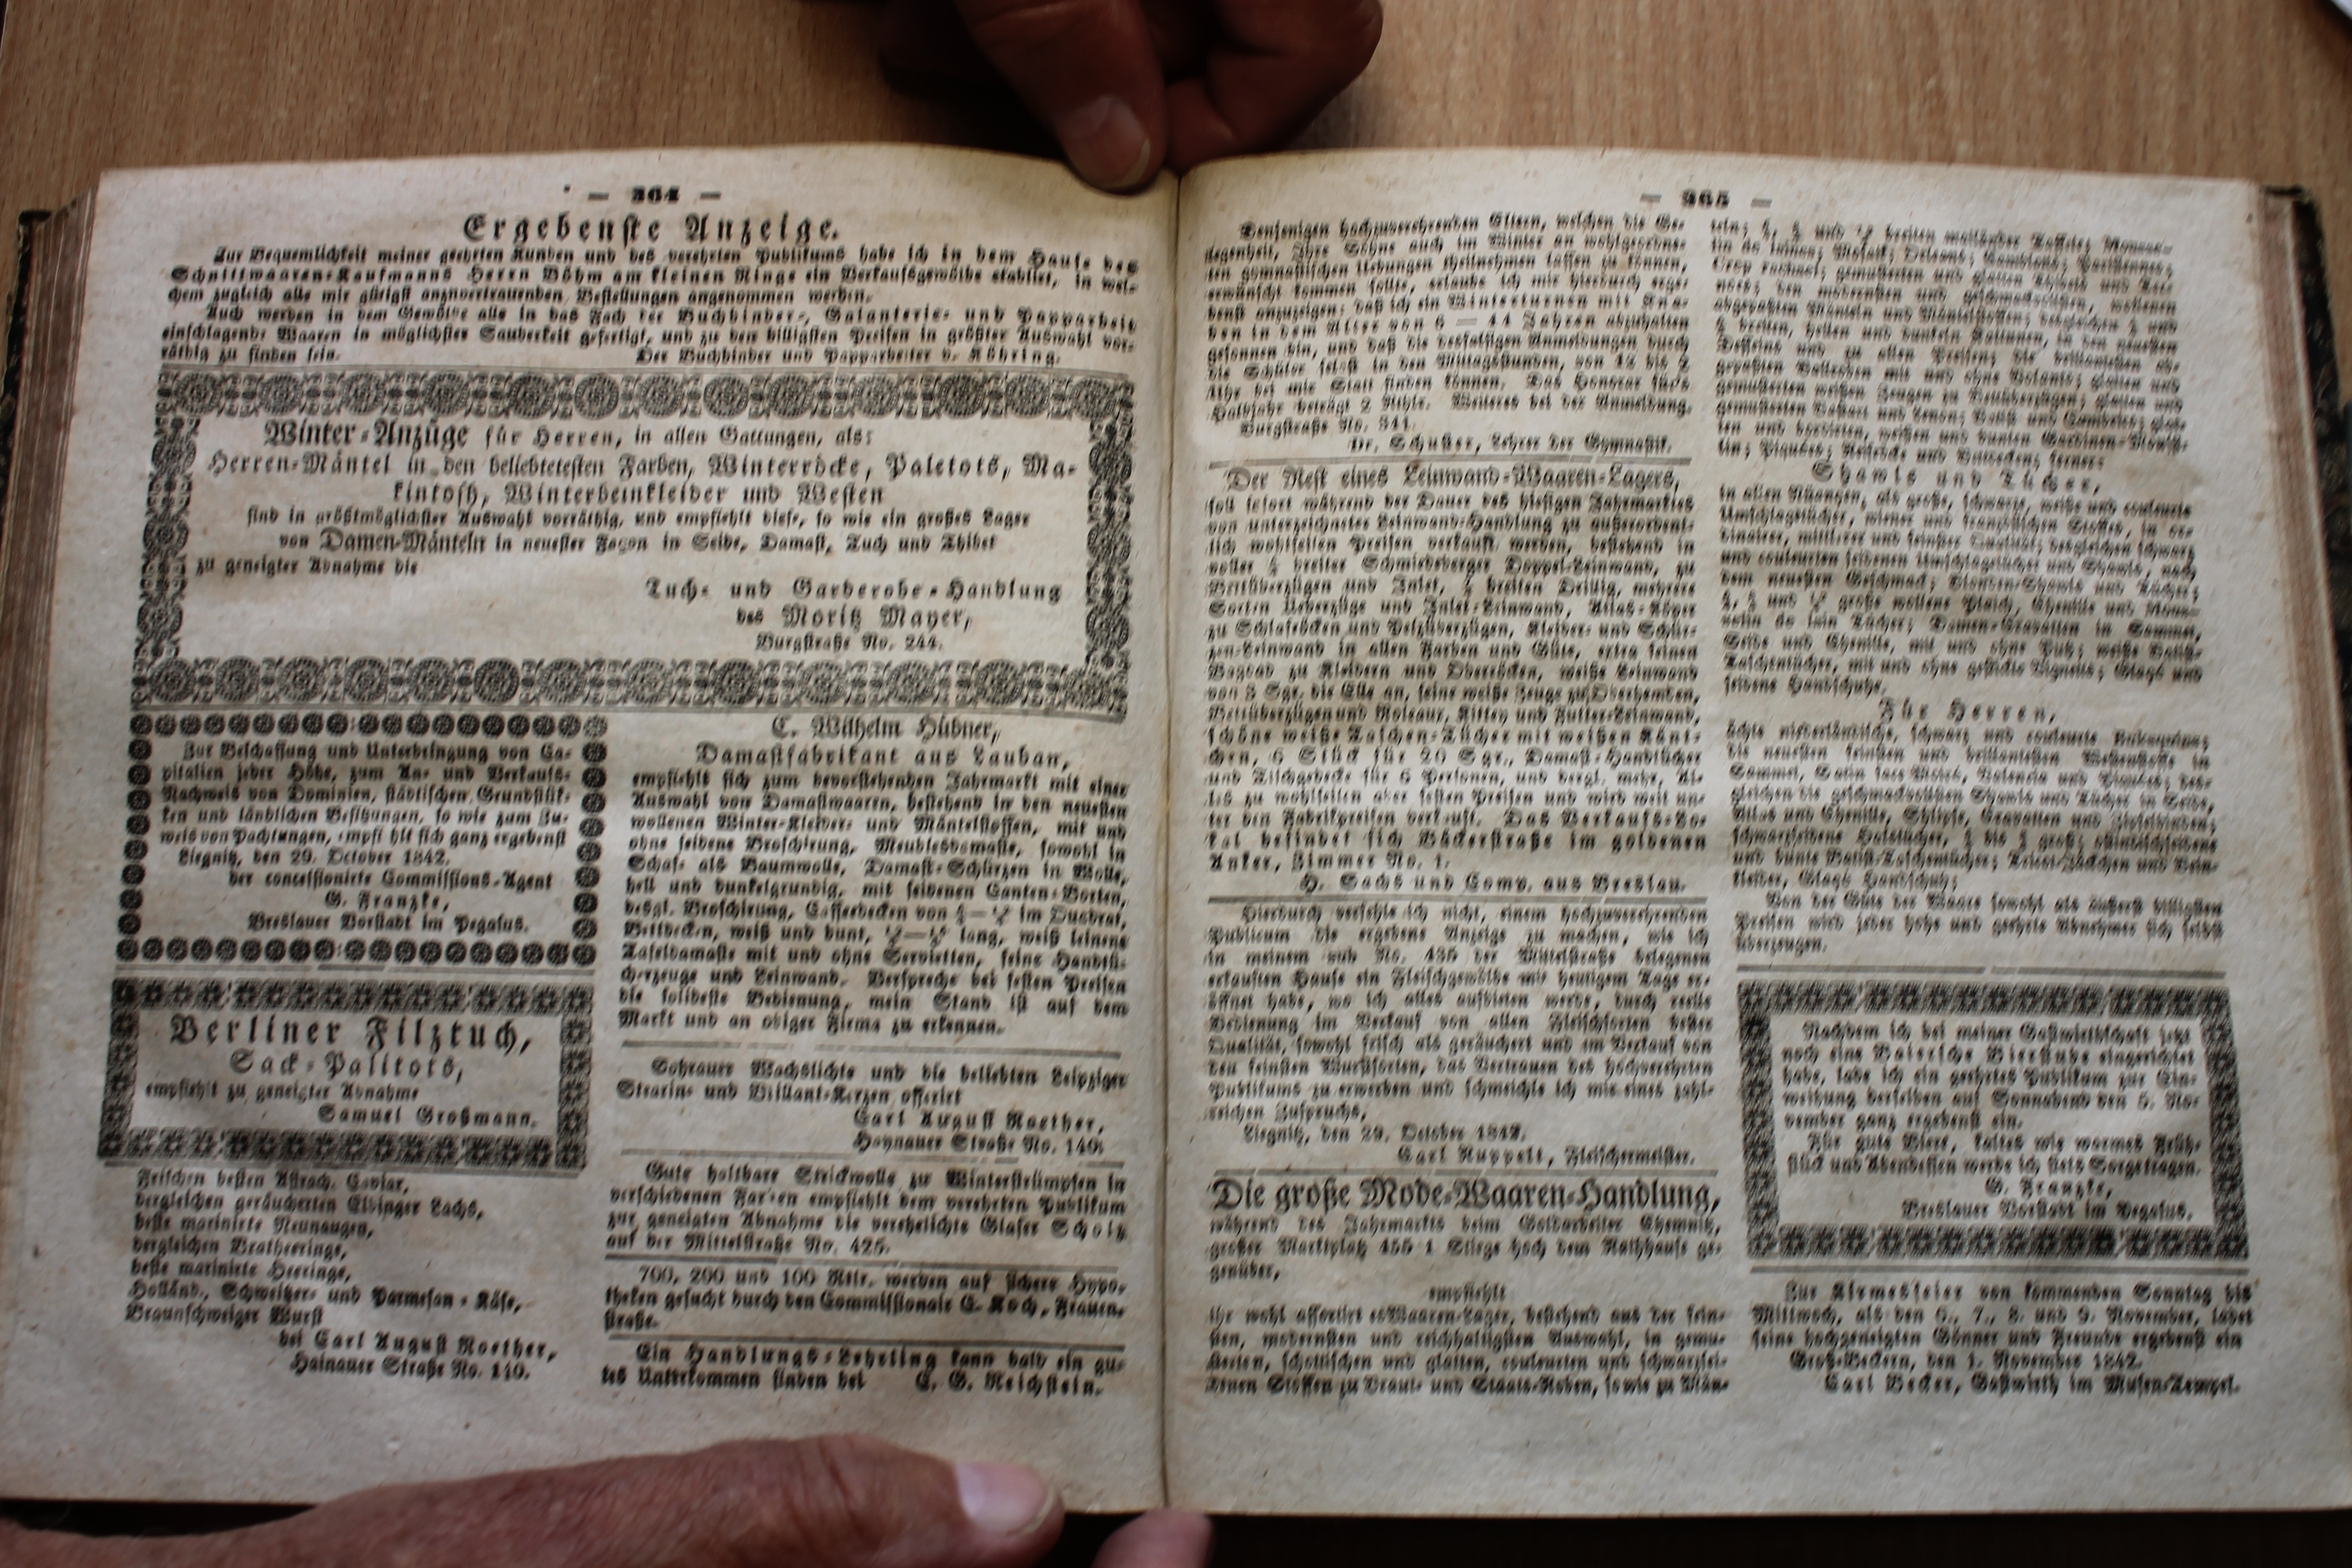 — 264 —
Ergebenste Anzeige.
Zur Bequemlichkeit meiner geehrten Kunden und des verehrten Publikums habe ich in dem Hause des
Schnittwaaren-Kaufmanns Herrn Böhm am kleinen Ringe ein Verkaufsgewölbe etablirt, in wel-
chem zugleich alle mir gütigst anzuvertrauenden Bestellungen angenommen werden.
Auch werden in dem Gewölbe alle in das Fach der Buchbinder-, Galanterie- und Papparbeit
einschlagende Waaren in möglichster Sauberkeit gefertigt, und zu den billigsten Preisen in größter Auswahl vor-
räthig zu finden sein. Der Buchbinder und Papparbeiter v. Röhring.
Winter-Anzüge für Herren, in allen Gattungen, als:
Herren-Mäntel in den beliebtetesten Farben, Winterröcke, Paletots, Ma-
kintosh, Winterbeinkleider und Westen
sind in größtmöglichster Auswahl vorräthig, und empfiehlt diese, so wie ein großes Lager
von Damen-Mänteln in neuester Façon in Seide, Damast, Tuch und Thibet
zu geneigter Abnahme die
Tuch- und Garderobe-Handlung
des Moritz Mayer,
Burgstraße No. 244.
Zur Beschaffung und Unterbringung von Ca-
pitalien jeder Höhe, zum An- und Verkaufs-
Nachweis von Dominien, städtischen Grundstük-
ken und ländlichen Besitzungen, so wie zum Zu-
weis von Pachtungen, empfi hlt sich ganz ergebenst
Liegnitz, den 29. October 1842.
der concessionirte Commissions-Agent
G. Franzke,
Breslauer Vorstadt im Pegasus.
Berliner Filztuch,
Sack-Palitots,
empfiehlt zu geneigter Abnahme
Samuel Großmann.
Frischen besten Astrach. Caviar,
dergleichen geräucherten Elbinger Lachs,
beste marinirte Neunaugen,
dergleichen Bratheeringe,
beste marinirte Heeringe,
Holländ., Schweitzer- und Parmesan-Käse,
Braunschweiger Wurst
bei Carl August Roether,
Hainauer Straße No. 140.
C. Wilhelm Hübner,
Damastfabrikant aus Lauban,
empfiehlt sich zum bevorstehenden Jahrmarkt mit einer
Auswahl von Damastwaaren, bestehend in den neuesten
wollenen Winter-Kleider- und Mäntelstoffen, mit und
ohne seidene Broschirung, Meublesdamaste, sowohl in
Schaf- als Baumwolle, Damast-Schürzen in Wolle,
hell und dunkelgrundig, mit seidenen Canten-Borten,
desgl. Broschirung, Cafferdecken von im Quadrat,
Bettdecken, weiß und bunt, lang, weiß leinene
Tafeldamaste mit und ohne Servietten, feine Handtü-
cherzeuge und Leinwand. Verspreche bei festen Preisen
die solideste Bedienung, mein Stand ist auf dem
Markt und an obiger Firma zu erkennen.
Sohrauer Wachslichte und die beliebten Leipziger
Stearin- und Brillant-Kerzen offerirt
Carl August Roether,
Haynauer Straße No. 140.
Gute haltbare Strickwolle zu Winterstrümpfen in
verschiedenen Farben empfiehlt dem verehrten Publikum
zur geneigten Abnahme die verehelichte Glaser Scholz
auf der Mittelstraße No. 425.
700, 200 und 100 Rtlr. werden auf sichere Hypo-
theken gesucht durch den Commissionair E. Koch, Frauen-
straße.
Ein Handlungs-Lehrling kann bald ein gu-
tes Unterkommen finden bei C. G. Reichstein.
— 265 —
Denjenigen hochzuverehrenden Eltern, welchen die Ge-
legenheit, Ihre Söhne auch im Winter an wohlgeordne-
ten gymnastischen Uebungen theilnehmen lassen zu können,
erwünscht kommen sollte, erlaube ich mir hierdurch erge-
benst anzuzeigen, daß ich ein Winterturnen mit Kna-
ben in dem Alter von 6 — 14 Jahren abzuhalten
gesonnen bin, und daß die desfallsigen Anmeldungen durch
die Schüler selbst in den Mittagsstunden, von 12 bis 2
Uhr bei mir Statt finden können. Das Honorar für's
Halbjahr beträgt 2 Rthlr. Weiteres bei der Anmeldung.
Burgstraße No. 341.
Dr. Schuster, Lehrer der Gymnastik.
Der Rest eines Leinwand-Waaren-Lagers,
soll sofort während der Dauer des hiesigen Jahrmarktes
von unterzeichneter Leinwand-Handlung zu außerordent-
lich wohlfeilen Preisen verkauft werden, bestehend in
voller breiter Schmiedeberger Doppel-Leinwand, zu
Bettüberzügen und Inlet, breiten Drillig, mehrere
Sorten Ueberzüge und Inlet-Leinwand, Atlas-Köper
zu Schlafröcken und Pelzüberzügen, Kleider- und Schür-
zen-Leinwand in allen Farben und Güte, extra feinen
Bagdad zu Kleidern und Oberröcken, weiße Leinwand
von 3 Sgr. die Elle an, feine weiße Zeuge zu Oberhemden,
Bettüberzügen und Roleaux, Kittey und Futter-Leinwand,
schöne weiße Taschen-Tücher mit weißen Känt-
chen, 6 Stück für 20 Sgr., Damast-Handtücher
und Tischgedecke für 6 Personen, und dergl. mehr, Al-
les zu wohlfeilen aber festen Preisen und wird weit un-
ter den Fabrikpreisen verkauft. Das Verkaufs-Lo-
kal befindet sich Bäckerstraße im goldenen
Anker, Zimmer No. 1.
H. Sachs und Comp. aus Breslau.
Hierdurch verfehle ich nicht, einem hochzuverehrenden
Publicum die ergebene Anzeige zu machen, wie ich
in meinem sub No. 435 der Mittelstraße belegenen
erkauften Hause ein Fleischgewölbe mit heutigem Tage er-
öffnet habe, wo ich alles aufbieten werde, durch reelle
Bedienung im Verkauf von allen Fleischsorten bester
Qualität, sowohl frisch als geräuchert und im Verkauf von
den feinsten Wurstsorten, das Vertrauen des hochverehrten
Publikums zu erwerben und schmeichle ich mir eines zahl-
reichen Zuspruchs.
Liegnitz, den 29. October 1842.
Carl Ruppelt, Fleischermeister.
Die große Mode-Waaren-Handlung,
während des Jahrmarkts beim Goldarbeiter Chemnitz,
großer Marktplatz 455 1 Stiege hoch dem Rathhause ge-
genüber,
empfiehlt
ihr wohl assortirt es Waaren-Lager, bestehend aus der fein-
sten, modernsten und reichhaltigsten Auswahl, in gemu-
sterten, schottischen und glatten, couleurten und schwarzsei-
denen Stoffen zu Braut- und Staats-Roben, sowie zu Män-
teln; und breiten mailänder Taffete;
gemusterten und glatten Thibets und
den modernsten und geschmackvollsten, wollenen
abgepaßten Mänteln und Mäntelstoffen; dergleichen und
breiten, hellen und dunkeln Kattunen, in den neuesten
Desseins und zu allen Preisen; die brillantesten ab-
gepaßten Ballroben mit und ohne Volants; glatten und
gemusterten weißen Zeugen zu Bettüberzügen; glatten und
ten und bordirten, weißen und bunten Gardinen-
ferner:
Shawls und Tücher,
in allen Nüançen, als große, schwarze, weiße und couleurte
Umschlagetücher, wiener und französischen Stoffes, in or-
dinairer, mittlerer und feinster Qualität; dergleichen schwarz
und couleurten seidenen Umschlagetücher und Shawls, nach
dem neuesten Geschmack; Blonden-Shawls und Tücher;
und große wollene Plaid, Chenille und
Tücher; Damen-Cravatten in Sammet,
Seide und Chenille, mit und ohne Putz; weiße Batist-
Taschentücher, mit und ohne gestickte Vignetts; Glacé und
seidene Handschuhe.
Für Herren,
ächte niederländische, schwarz und couleurte
die neuesten feinsten und brillantesten Westenstoffe in
Sammet, Valencia und Piquées; der-
gleichen die geschmackvollsten Shawls und Tücher in Seide,
Atlas und Chenille, Shlipse, Cravatten und
schwarzseidene Halstücher, bis groß; ostindischseidene
und bunte Batist-Taschentücher; Tricot-Jäckchen und Bein-
kleider, Glacé Handschuh;
Von der Güte der Waare sowohl als äußerst billigsten
Preisen wird jeder hohe und geehrte Abnehmer sich selbst
überzeugen.
Nachdem ich bei meiner Gastwirthschaft jetzt
noch eine Baiersche Bierstube eingerichtet
habe, lade ich ein geehrtes Publikum zur Ein-
weihung derselben auf Sonnabend den 5. No-
vember ganz ergebenst ein.
Für gute Biere, kaltes wie warmes Früh-
stück und Abendessen werde ich stets Sorge tragen.
G. Franzke,
Breslauer Vorstadt im Pegasus.
Zur Kirmesfeier von kommenden Sonntag bis
Mittwoch, als den 6., 7., 8. und 9. November, ladet
seine hochgeneigten Gönner und Freunde ergebenst ein
Groß-Beckern, den 1. November 1842.
Carl Becker, Gastwirth im Musen-Tempel.